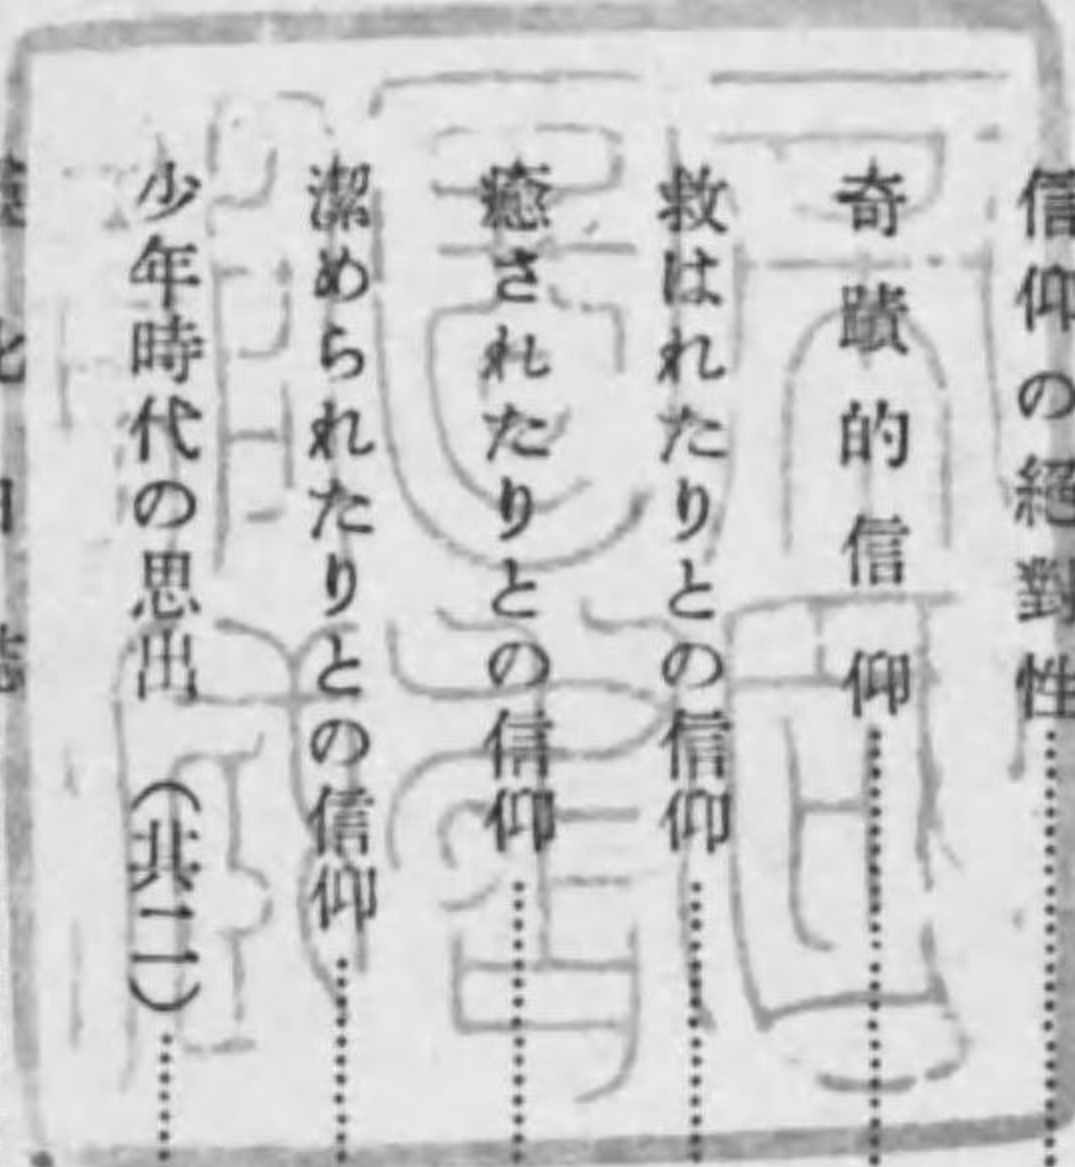 信仰の絕對性
奇蹟的信仰
救はれたりとの信仰
癒されたりとの信仰
潔められたりとの信仰
少年時代の思出（其二）